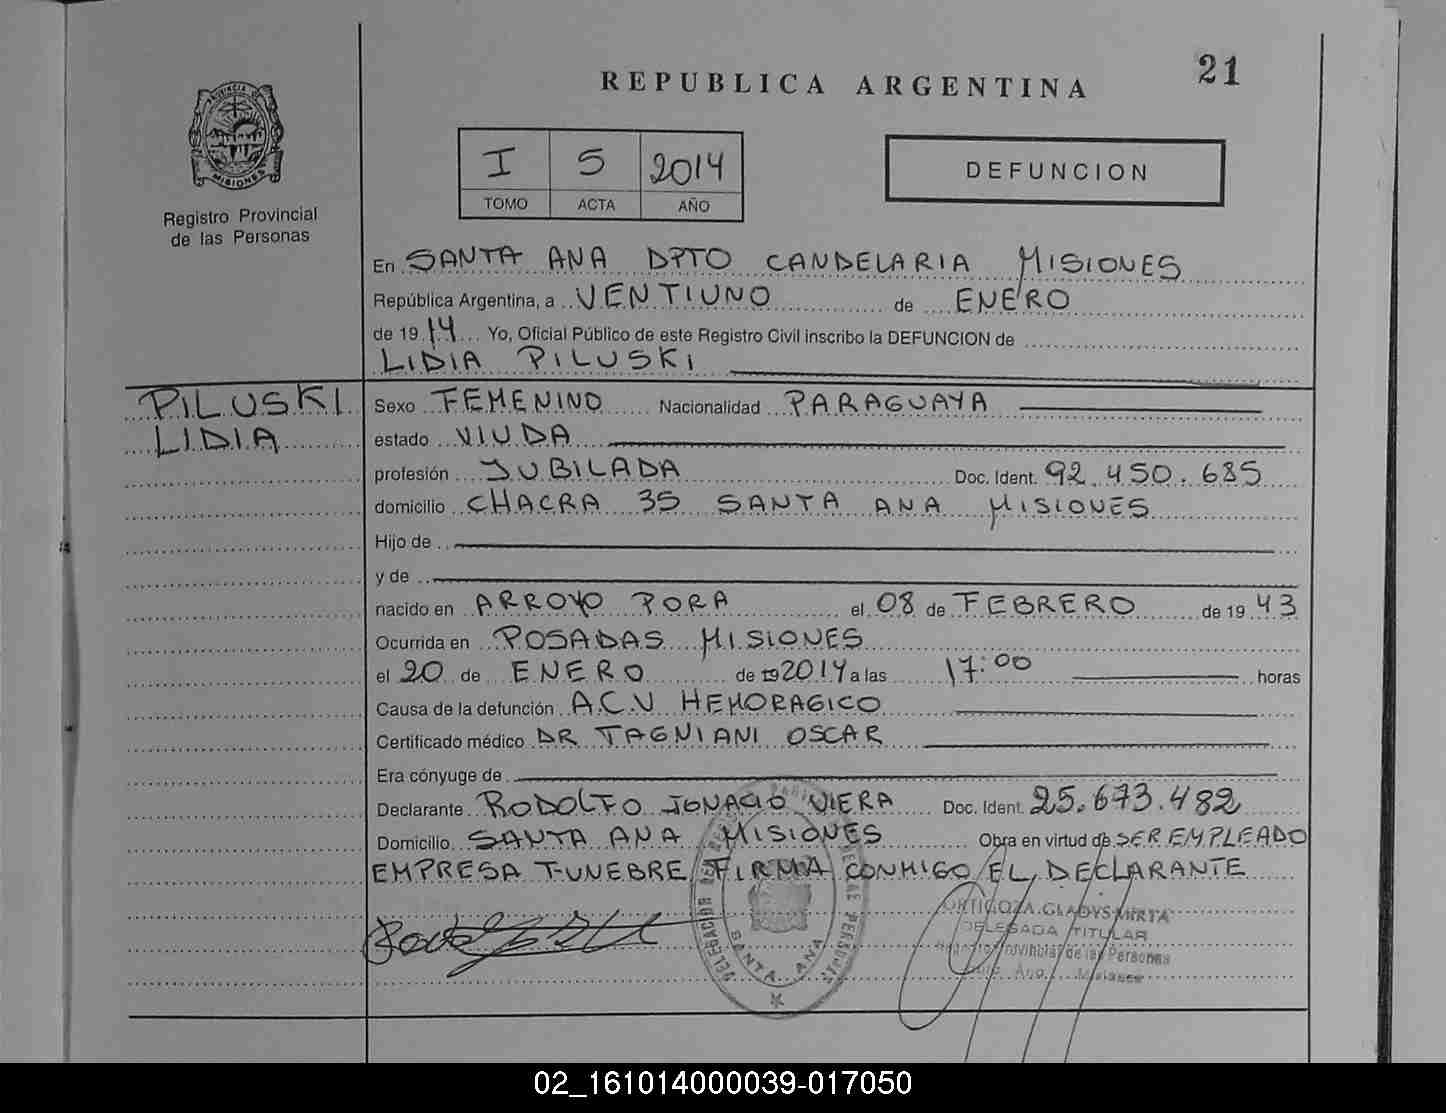 21
REPUBLICA ARGENTINA
PROVINCIA DE
MISIONES
Registro Provincial
de las Personas
I 5 2014
TOMO ACTA AÑO
DEFUNCION
En SANTA ANA DPTO CANDELARIA MISIONES
República Argentina, a VENTIUNO de ENERO
de 19 14 Yo, Oficial Público de este Registro Civil inscribo la DEFUNCION de
LIDIA PILUSKI
PILUSKI
LIDIA
Sexo FEMENINO Nacionalidad PARAGUAYA
estado VIUDA
profesión JUBILADA Doc. Ident. 92.450.685
domicilio CHACRA 35 SANTA ANA MISIONES
Hijo de
y de
nacido en ARROYO PORA el 08 de FEBRERO de 19 43
Ocurrida en POSADAS MISIONES
el 20 de ENERO de 19 2014 a las 17:00 horas
Causa de la defunción A.C.V HEMORAGICO
Certificado médico DR TAGNIANI OSCAR
Era cónyuge de
Declarante RODOLFO IGNACIO VIERA Doc. Ident. 25.673.482
Domicilio SANTA ANA MISIONES Obra en virtud de SER EMPLEADO
EMPRESA FUNEBRE FIRMA CONMIGO EL DECLARANTE
ORTIGOZA GLADYS MIRTA
DELEGADA TITULAR
Registro Provincial de las Personas
Santa Ana - Misiones
SANTA ANA
02_161014000039-017050